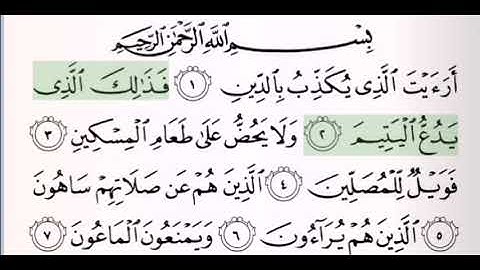 بِسْمِ اللَّهِ الرَّحْمَٰنِ الرَّحِيمِ
أَرَءَيْتَ الَّذِى يُكَذِّبُ بِالدِّينِ ١ فَذَٰلِكَ الَّذِى
يَدُعُّ الْيَتِيمَ ٢ وَلَا يَحُضُّ عَلَىٰ طَعَامِ الْمِسْكِينِ ٣
فَوَيْلٌ لِّلْمُصَلِّينَ ٤ الَّذِينَ هُمْ عَن صَلَاتِهِمْ سَاهُونَ
٥ الَّذِينَ هُمْ يُرَآءُونَ ٦ وَيَمْنَعُونَ الْمَاعُونَ ٧